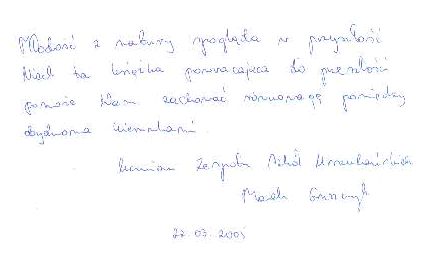 Młodość z natury spogląda w przyszłość
Niech ta książka powracająca do przeszłości
pomoże Wam zachować równowagę pomiędzy
obydwoma kierunkami.
Uczniom Zespołu Szkół
Marek
22.03.2005